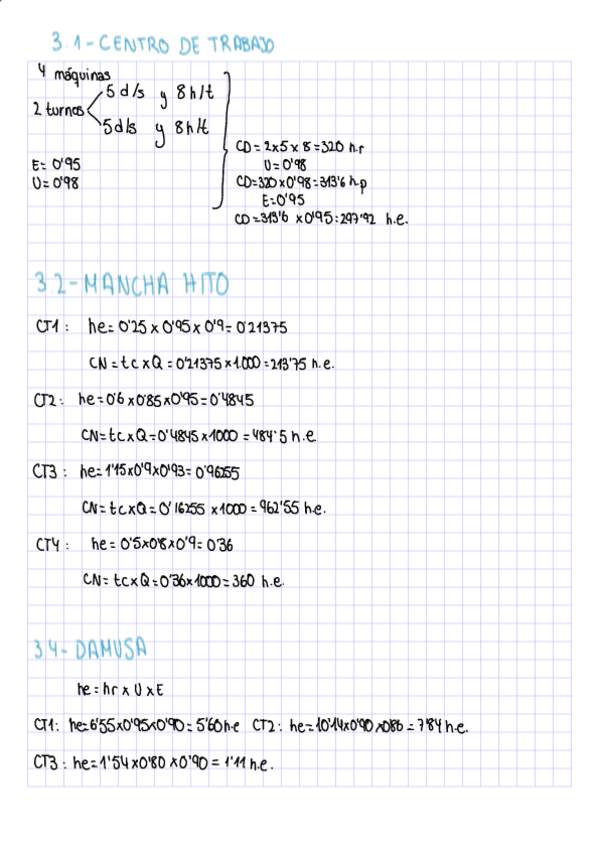 3.1-CENTRO DE TRABAJO
4 máquinas
2 turnos
5 d/s y 8 h/t
5 d/s y 8 h/t
E= 0'95
U= 0'98
CD= 2x5x8=320 h.r
U=0'98
CD=320x0'98=313'6 h.p
E=0'95
CD=313'6 x0'95:297'92 h.e.
3.2-MANCHA HITO
CT1: he= 0'25 x 0'95 x 0'9= 0'21375
CN=tcxQ=0'21375x1.000=213'75 h.e.
CT2: he=0'6 x0'85x0'95=0'4845
CN=tcxQ=0'4845x1000=484'5 h.e
CT3: he=1'15x0'9x0'93= 0'96255
CN=tcxQ=0'16255 x1000=962'55 h.e.
CT4: he= 0'5x0'8x0'9= 0'36
CN= tcxQ=0'36x1000=360 h.e.
3.4- DAMUSA
he=hr x U x E
CT1: he=6'55x0'95x0'90= 5'60h.e CT2: he=10'14x0'90x0'86=7'84 h.e.
CT3: he=1'54x0'80 x0'90= 1'11 h.e.